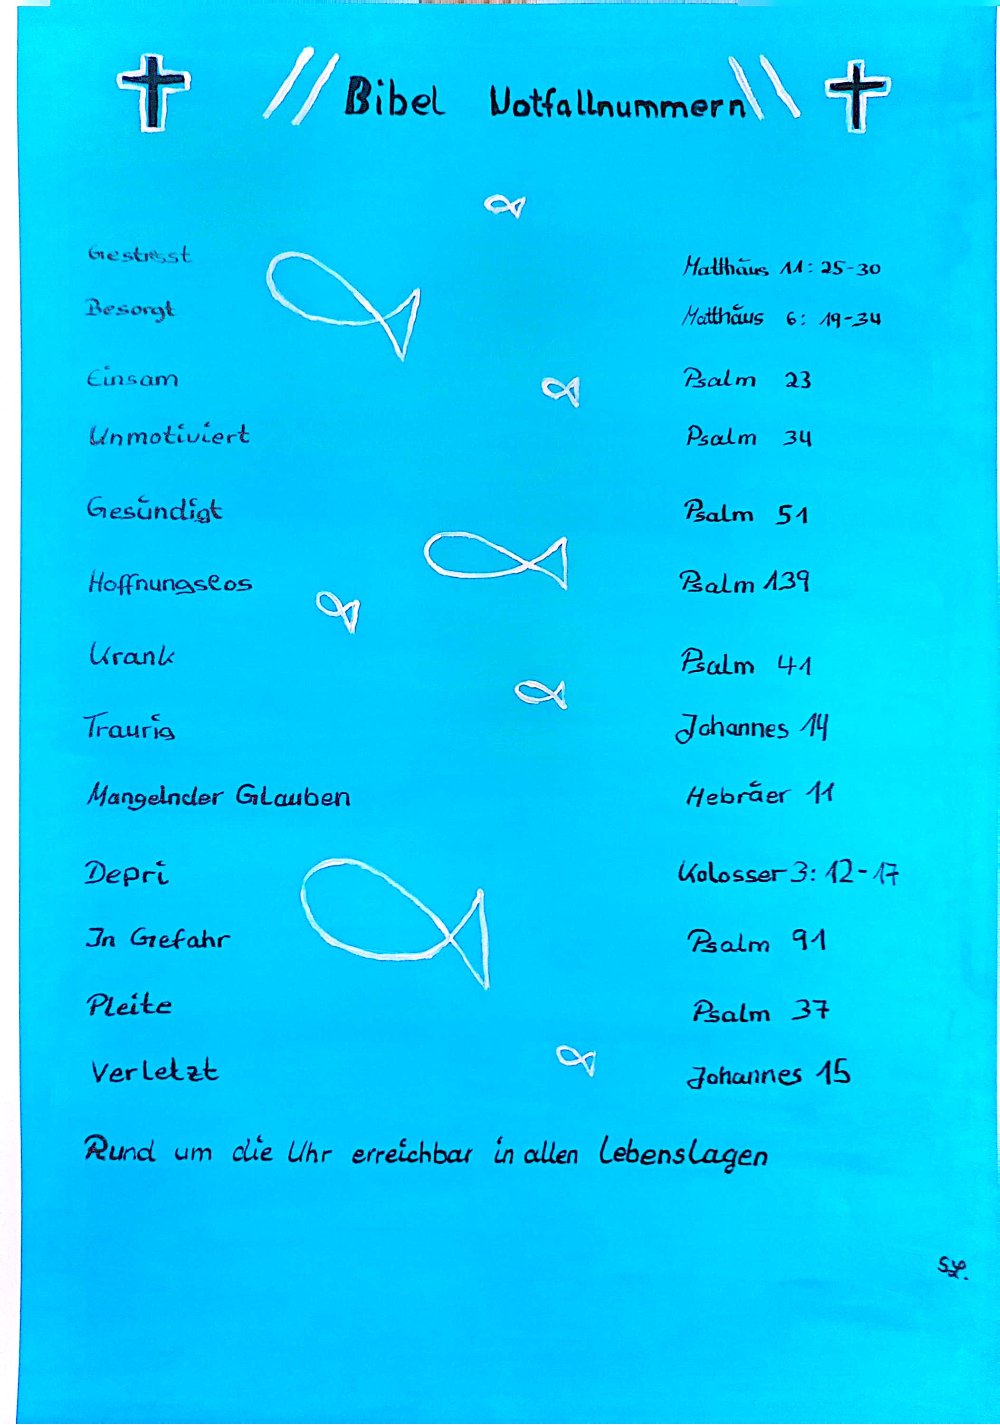 Bibel Notfallnummern
Gestresst Matthäus 11: 25-30
Besorgt Matthäus 6: 19-34
Einsam Psalm 23
Unmotiviert Psalm 34
Gesündigt Psalm 51
Hoffnungslos Psalm 139
Krank Psalm 41
Traurig Johannes 14
Mangelnder Glauben Hebräer 11
Depri Kolosser 3: 12-17
In Gefahr Psalm 91
Pleite Psalm 37
Verletzt Johannes 15
Rund um die Uhr erreichbar in allen Lebenslagen